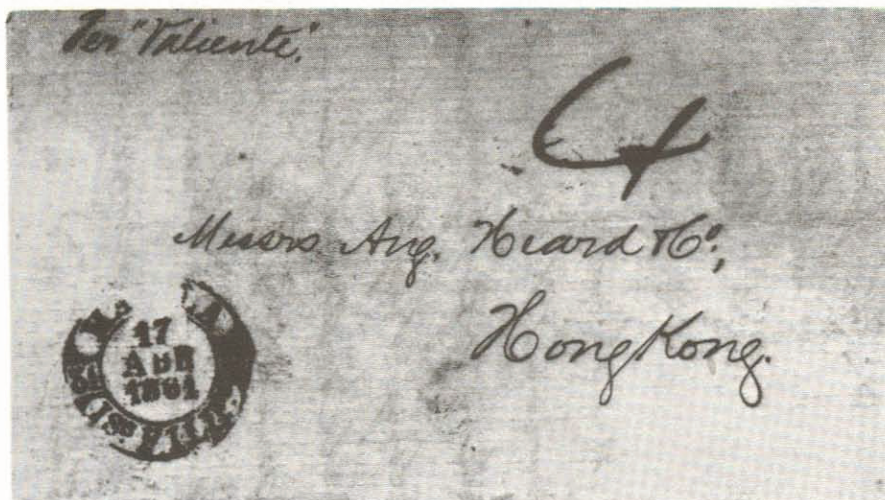 Per "Valiente".
4
Messrs Aug. Heard & Co,
Hong Kong.
17
ABR
1861